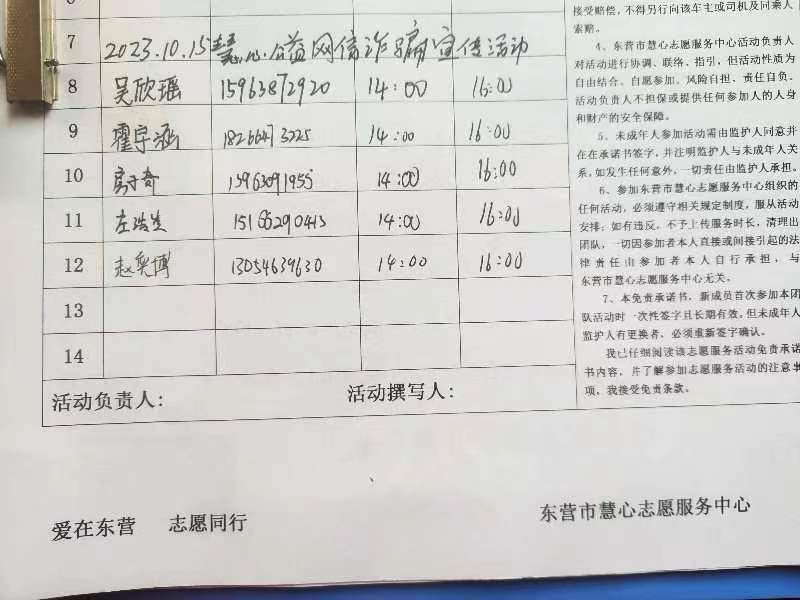 接受赔偿,不得另行向该车主或司机及同乘人
索赔。
7 2023.10.15慧心公益网信诈骗宣传活动
4、东营市慧心志愿服务中心活动负责人
对活动进行协调、联络、指引,但活动性质为
自由结合、自愿参加、风险自担、责任自负。
活动负责人不担保或提供任何参加人的人身
和财产的安全保障。
8 吴欣瑶 15963872920 14:00 16:00
9 霍宇涵 18266473225 14:00 16:00
5、未成年人参加活动需由监护人同意并
在在承诺书签字,并注明监护人与未成年人关
系,如发生任何意外,一切责任由监护人承担。
10 15963091955 14:00 16:00
6、参加东营市慧心志愿服务中心组织的
任何活动,必须遵守相关规定制度,服从活动
安排;如有违反,不予上传服务时长,清理出
团队,一切因参加者本人直接或间接引起的法
律责任由参加者本人自行承担,与
东营市慧心志愿服务中心无关。
11 左浩 14:00 16:00
12 赵奕博 13054639630 14:00 16:00
13
14
7、本免责承诺书,新成员首次参加本团
队活动时一次性签字且长期有效,但未成年人
监护人有更换者,必须重新签字确认。
我已仔细阅读该志愿服务活动免责承诺
书内容,并了解参加志愿服务活动的注意事
项,我接受免责条款。
活动负责人: 活动撰写人:
爱在东营 志愿同行
东营市慧心志愿服务中心